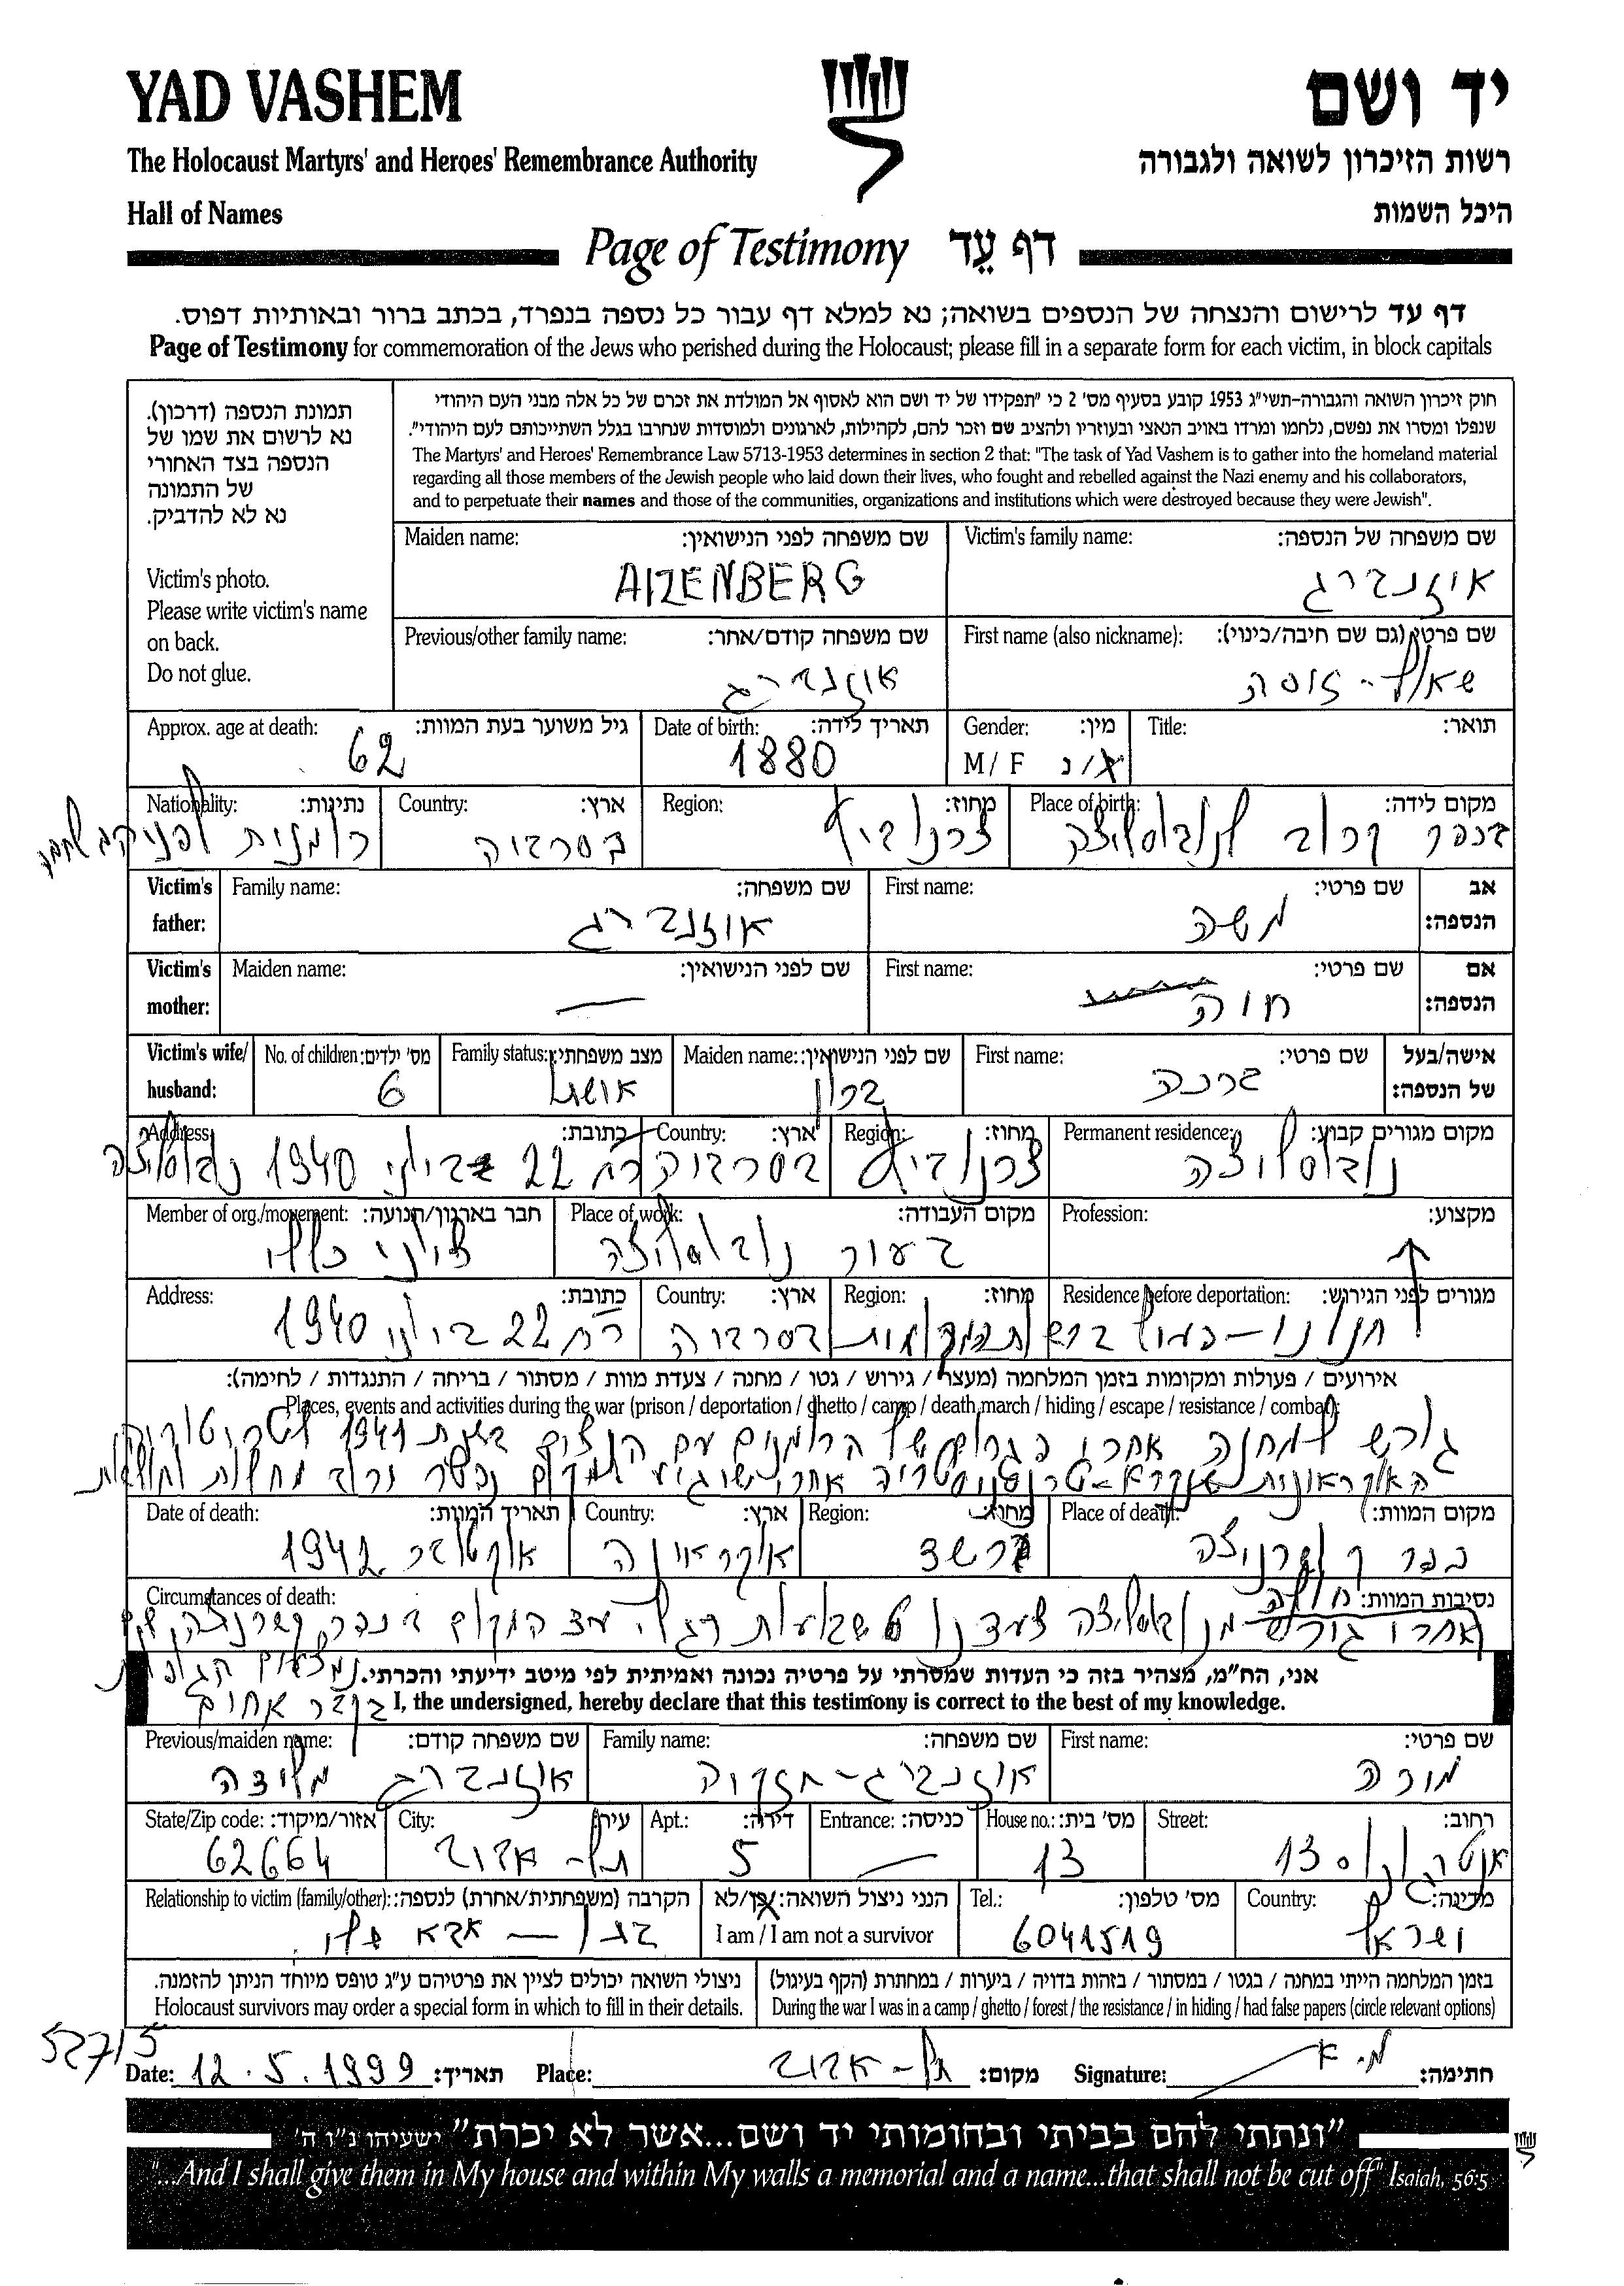 YAD VASHEM
יד ושם
The Holocaust Martyrs' and Heroes' Remembrance Authority
רשות הזיכרון לשואה ולגבורה
Hall of Names
היכל השמות
Page of Testimony דף עֵד
דף עד לרישום והנצחה של הנספים בשואה; נא למלא דף עבור כל נספה בנפרד, בכתב ברור ובאותיות דפוס.
Page of Testimony for commemoration of the Jews who perished during the Holocaust; please fill in a separate form for each victim, in block capitals
תמונת הנספה (דרכון).
נא לרשום את שמו של
הנספה בצד האחורי
של התמונה
נא לא להדביק.
Victim's photo.
Please write victim's name
on back.
Do not glue.
חוק זיכרון השואה והגבורה-תשי"ג 1953 קובע בסעיף מס' 2 כי "תפקידו של יד ושם הוא לאסוף אל המולדת את זכרם של כל אלה מבני העם היהודי
שנפלו ומסרו את נפשם, נלחמו ומרדו באויב הנאצי ובעוזריו ולהציב שם וזכר להם, לקהילות, לארגונים ולמוסדות שנחרבו בגלל השתייכותם לעם היהודי".
The Martyrs' and Heroes' Remembrance Law 5713-1953 determines in section 2 that: "The task of Yad Vashem is to gather into the homeland material
regarding all those members of the Jewish people who laid down their lives, who fought and rebelled against the Nazi enemy and his collaborators,
and to perpetuate their names and those of the communities, organizations and institutions which were destroyed because they were Jewish".
Victim's family name: שם משפחה של הנספה:
איזנברג
Maiden name: שם משפחה לפני הנישואין:
AIZENBERG
First name (also nickname): שם פרטי (גם שם חיבה/כינוי):
שאול - יוסה
Previous/other family name: שם משפחה קודם/אחר:
איזנברג
Title: תואר:
Gender: מין:
M / F ז/נ
Date of birth: תאריך לידה:
1880
Approx. age at death: גיל משוער בעת המוות:
62
Place of birth: מקום לידה:
בכפר קרוב לנובוסליצה
Region: מחוז:
צרנוביץ
Country: ארץ:
בסרביה
Nationality: נתינות:
רומנית לפני
Victim's father: אב הנספה:
First name: שם פרטי:
משה
Family name: שם משפחה:
איזנברג
Victim's mother: אם הנספה:
First name: שם פרטי:
חוה
Maiden name: שם לפני הנישואין:
—
Victim's wife/ husband: אישה/בעל של הנספה:
First name: שם פרטי:
ברכה
Maiden name: שם לפני הנישואין:
ברון
Family status: מצב משפחתי:
נשוי
No. of children: מס' ילדים:
6
Permanent residence: מקום מגורים קבוע:
נובוסליצה
Region: מחוז:
צרנוביץ
Country: ארץ:
בסרביה
Address: כתובת:
עד 22 ביוני 1940 נובוסליצה
Profession: מקצוע:
Place of work: מקום העבודה:
בעיר נובוסליצה
Member of org./movement: חבר בארגון/תנועה:
ציוני כללי
Residence before deportation: מגורים לפני הגירוש:
חנוני –
Region: מחוז:
Country: ארץ:
בסרביה
Address: כתובת:
עד 22 ביוני 1940
אירועים / פעולות ומקומות בזמן המלחמה (מעצר / גירוש / גטו / מחנה / צעדת מוות / מסתור / בריחה / התנגדות / לחימה):
Places, events and activities during the war (prison / deportation / ghetto / camp / death march / hiding / escape / resistance / combat):
גורש למחנה אחרי של הרומנים עם הנאצים בשנת 1941
האוקראינית שנקרא - טרנסניסטריה אחרי שהגיע למקום נפטר
Place of death: מקום המוות:
בכפר
Region: מחוז:
Country: ארץ:
אוקראינה
Date of death: תאריך המוות:
אוקטובר 1942
Circumstances of death: נסיבות המוות:
אחרי גורש מנובוסליצה צעדנו 6 שבועות רגלי עד המקום בכפר
בקבר אחים
אני, הח"מ, מצהיר בזה כי העדות שמסרתי על פרטיה נכונה ואמיתית לפי מיטב ידיעתי והכרתי.
I, the undersigned, hereby declare that this testimony is correct to the best of my knowledge.
First name: שם פרטי:
מוניה
Family name: שם משפחה:
איזנברג - חזקיה
Previous/maiden name: שם משפחה קודם:
איזנברג
Street: רחוב:
House no.: מס' בית:
13
Entrance: כניסה:
—
Apt.: דירה:
5
City: עיר:
תל - אביב
State/Zip code: אזור/מיקוד:
62664
Country: מדינה:
ישראל
Tel.: מס' טלפון:
6041519
הנני ניצול השואה: כן/לא
I am / I am not a survivor
Relationship to victim (family/other): הקרבה (משפחתית/אחרת) לנספה:
בנו — אבא שלי
בזמן המלחמה הייתי במחנה / בגטו / במסתור / בזהות בדויה / ביערות / במחתרת (הקף בעיגול)
During the war I was in a camp / ghetto / forest / the resistance / in hiding / had false papers (circle relevant options)
ניצולי השואה יכולים לציין את פרטיהם ע"ג טופס מיוחד הניתן להזמנה.
Holocaust survivors may order a special form in which to fill in their details.
Date: 12.5.1999 תאריך: Place: תל - אביב מקום: Signature: מ.א חתימה:
"ונתתי להם בביתי ובחומותי יד ושם...אשר לא יכרת" ישעיהו נ"ו ה'
"...And I shall give them in My house and within My walls a memorial and a name...that shall not be cut off" Isaiah, 56:5